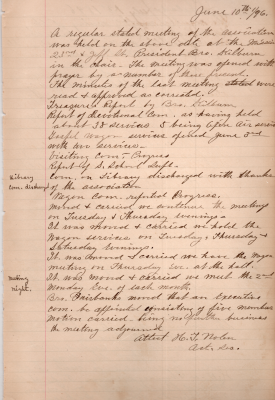 June 10th/96.
A regular stated meeting of the association
was held on the above date at the Mission
23rd & St. President Bro. Stilburn
in the Chair. The meeting was opened with
prayer by a number of those present.
The minutes of the last meeting stated were
read & approved as corrected.
Treasurer's report by Bro.
Report of Devotional Com. as having held
about 38 services, 5 being Open Air services
Gospel Wagon services opened June 3rd
with services.
Visiting Com. Progress
Report of S. School
Library
Com. discharged
Com. on Library discharged with thanks
of the association
Wagon Com. reported Progress.
Moved & carried we continue the meetings
on Tuesday & Thursday evenings.
It was moved & carried we hold the
Wagon services on Tuesday, Thursday &
Saturday evenings.
It was moved & carried we have the Wagon
meeting on Thursday Eve. at the hall.
Meeting
Night.
It was moved & carried we meet the 2nd
Monday Eve. of each month
Bro. Fairbanks moved that an Executive
com. be appointed consisting of five members
motion carried. being no further business
the meeting adjourned.
Attest H. T. Nolin
Act. Sec.